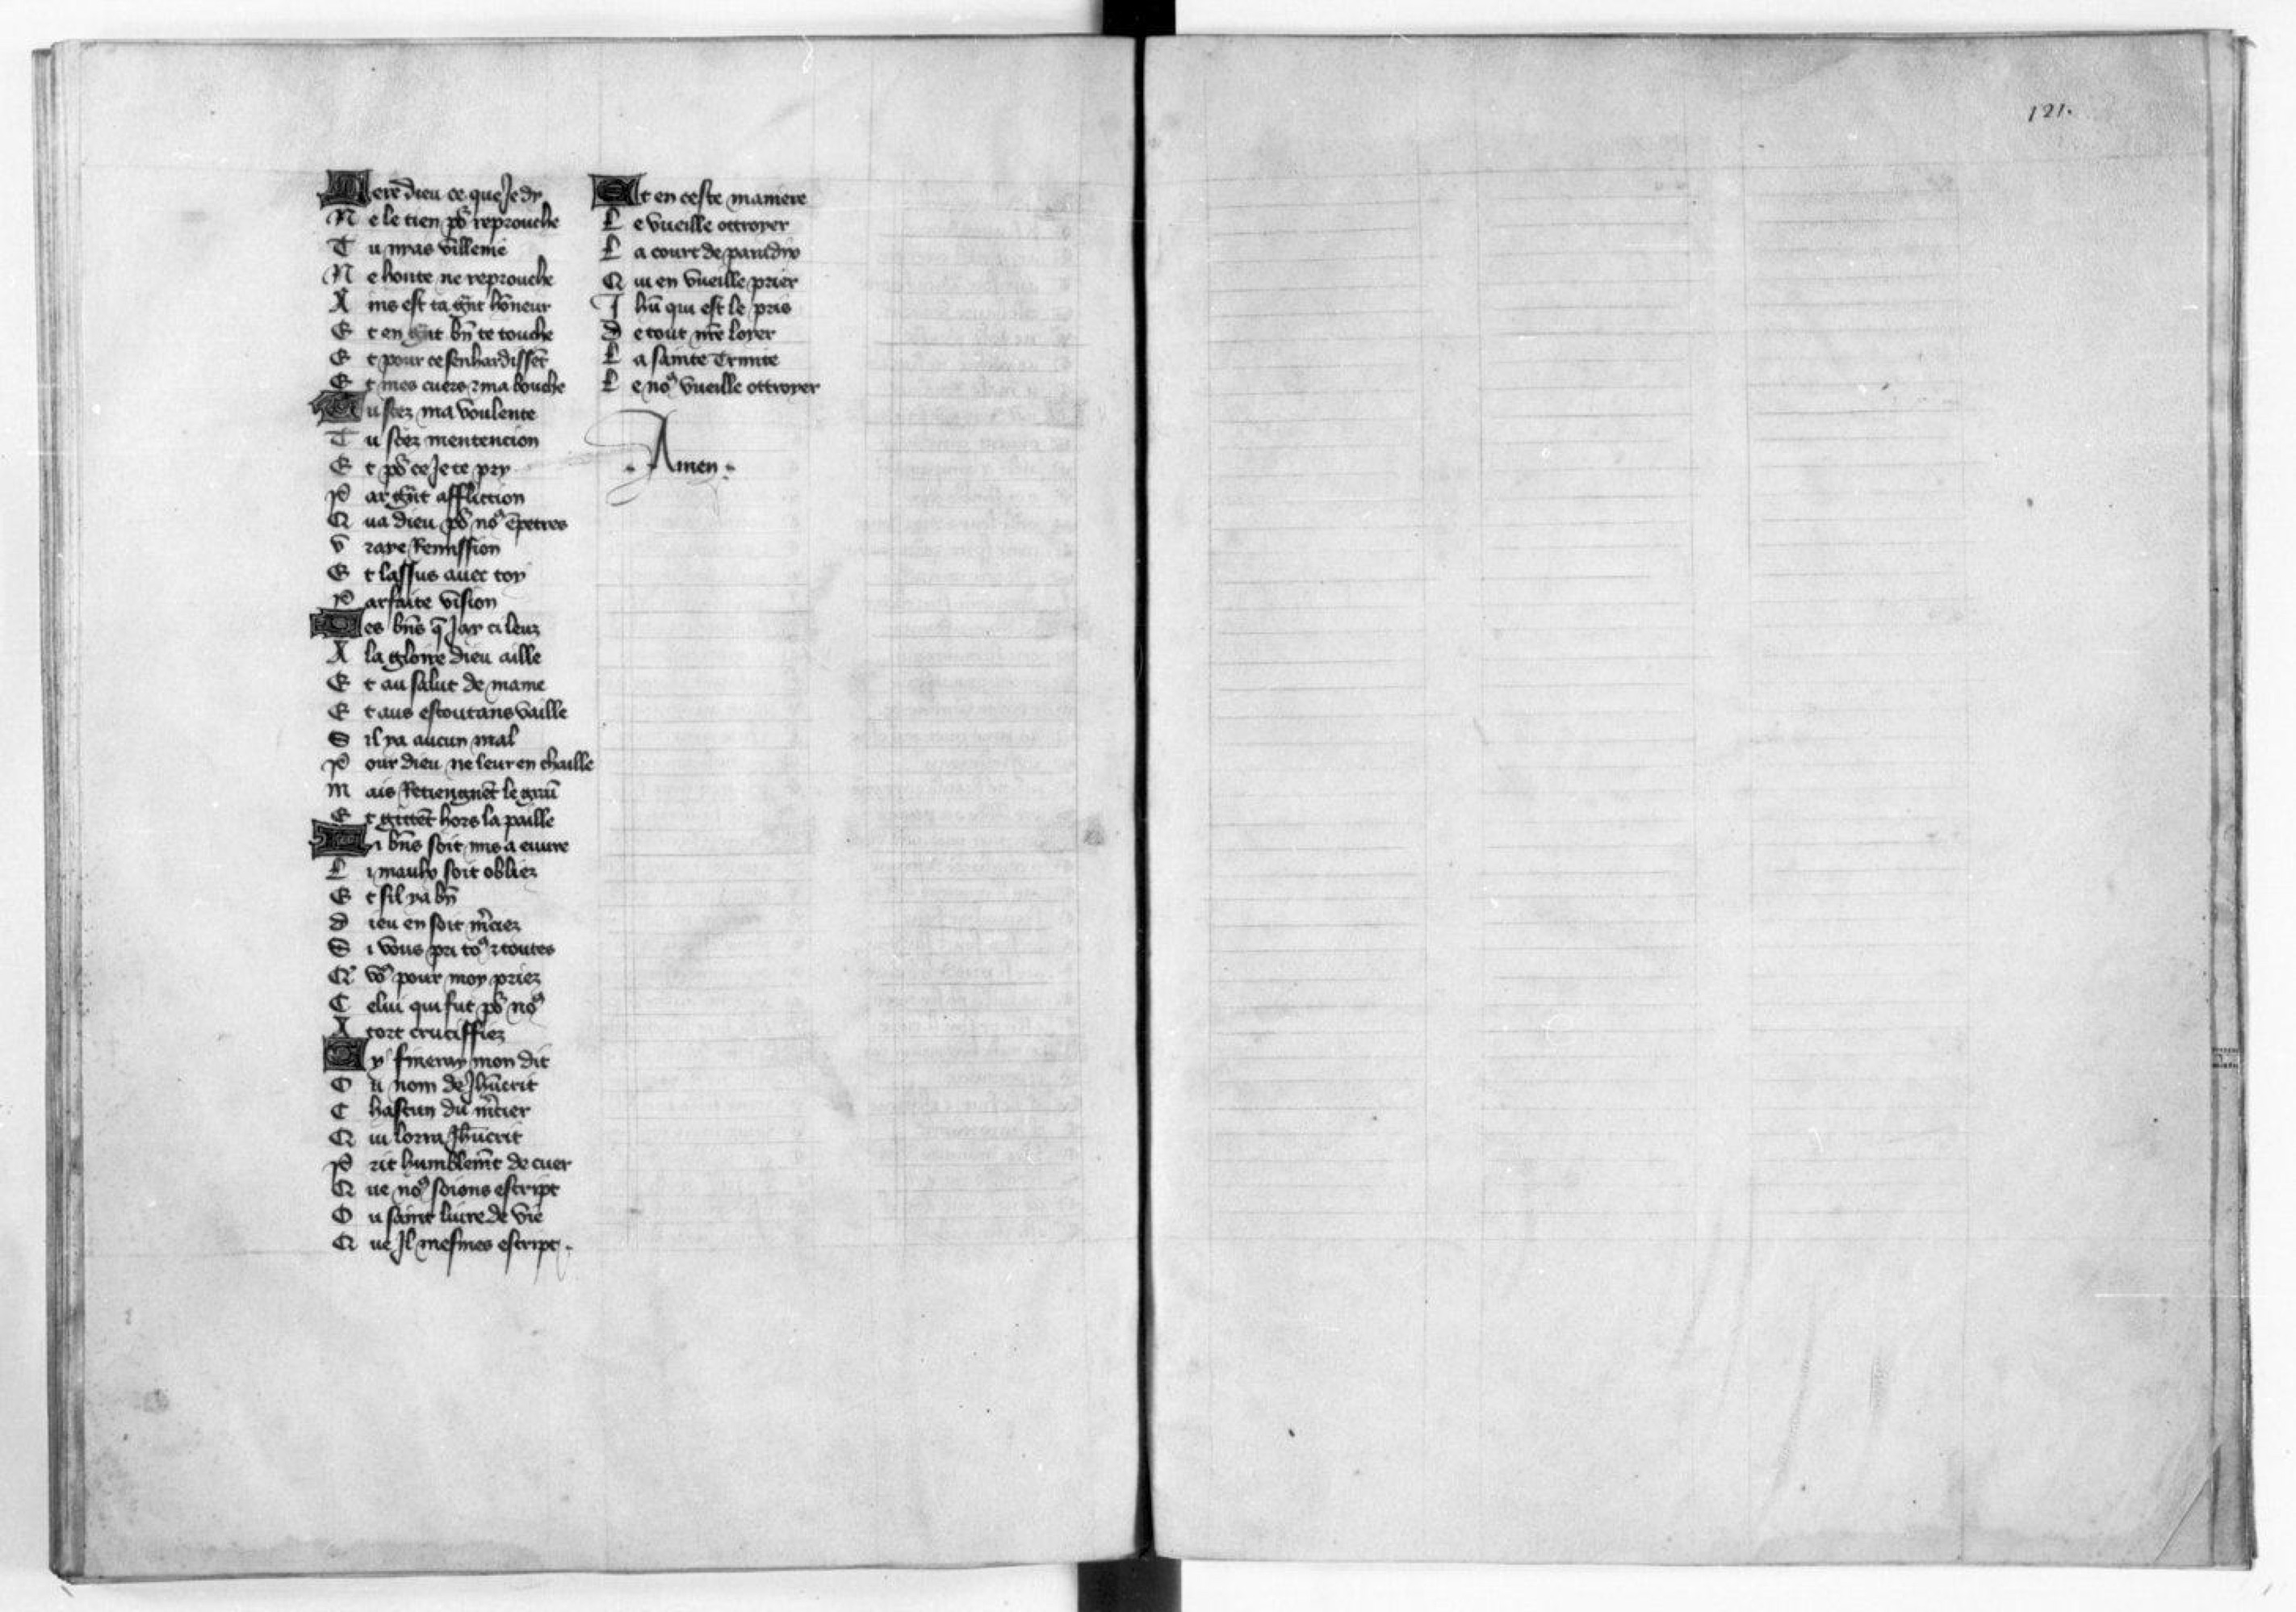 Mere dieu ce que Je dy
Ne le tien pour reprouche
Tu nyas villenie
Ne honte ne reprouche
Ains est ta gñt hõneur
Et en gñt bñ te touche
Et pour ce senhardissẽt
Et mes cuers ⁊ ma bouche
Tu scez ma voulente
Tu scez mentencion
Et pour ce Je te pry
Par gñt affliction
Qua dieu pour noꝰ ẽpetres
Vraye Remission
Et lassus auec toy
Parfaite vision
Les bñs q̃ Jay ci leuz
A la gloire dieu aille
Et au salut de mame
Et aus escoutans vaille
Sil ya aucun mal
Pour dieu ne leur en chaille
Mais Retiengnẽt le grain
Et gittẽt hors la paille
Li bñs soit mis a euure
Li maulx soit obliez
Et sil ya bñ
dieu en soit m̃ciez
Si vous pri toꝰ ⁊ toutes
Q̃ voꝰ pour moy priez
Celui qui fut pour noꝰ
A tort cruciffiez
Cy fineray mon dit
Ou nom de Jhũcrit
Chascun du m̃cier
Qui lorra Jhũcrit
Prit humblem̃t de cuer
Que noꝰ soions escript
Ou saint liure de vie
Que Jl mesmes escript.
Et en ceste maniere
Le vueille ottroyer
La court de paradix
Qui en vueille prier
Jhũ qui est le pris
de tout nr̃e loyer
La sainte Trinite
Le noꝰ vueille ottroyer
Amen.
121.